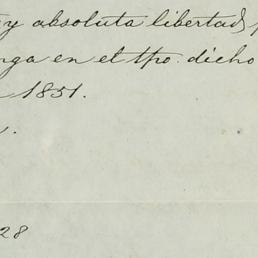 y absoluta libertad
nga en el tpo. dicho
1851.
28